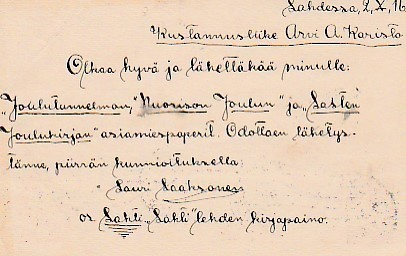 Lahdessa, 2, X, 16
Kustannusliike Arvi A. Karisto
Olkaa hyvä ja lähettäkää minulle:
"Joulutunnelman," "Nuorison Joulun" ja "Lasten
Joulukirjan" asiamiespaperit. Odottaen lähetys-
tänne, piirrän kunnioituksella:
Lauri Laaksonen
os. Lahti. "Lahti" lehden kirjapaino.